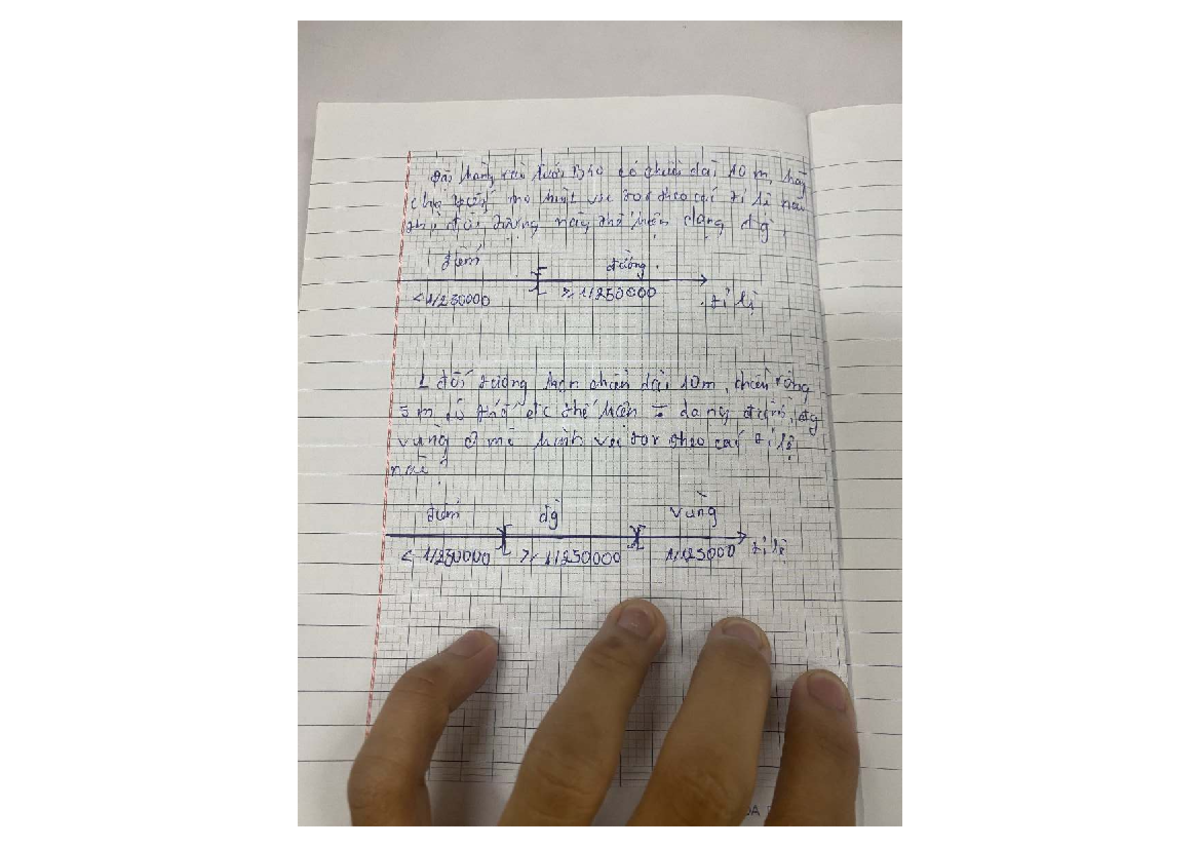 hàng rào lưới B40 có chiều dài 10 m, hãy
mô hình vec tor theo các tỉ lệ nào
đối tượng này thể hiện dạng đg
điểm đường
< 1/250000 ≥ 1/250000 tỉ lệ
1 đối tượng hcn chiều dài 10m, chiều rộng
5 m có thể đc thể hiện ở dạng điểm, đg
vùng ở mô hình vec tor theo các tỉ lệ
nào?
điểm đg vùng
< 1/250000 ≥ 1/250000 1/125000 tỉ lệ